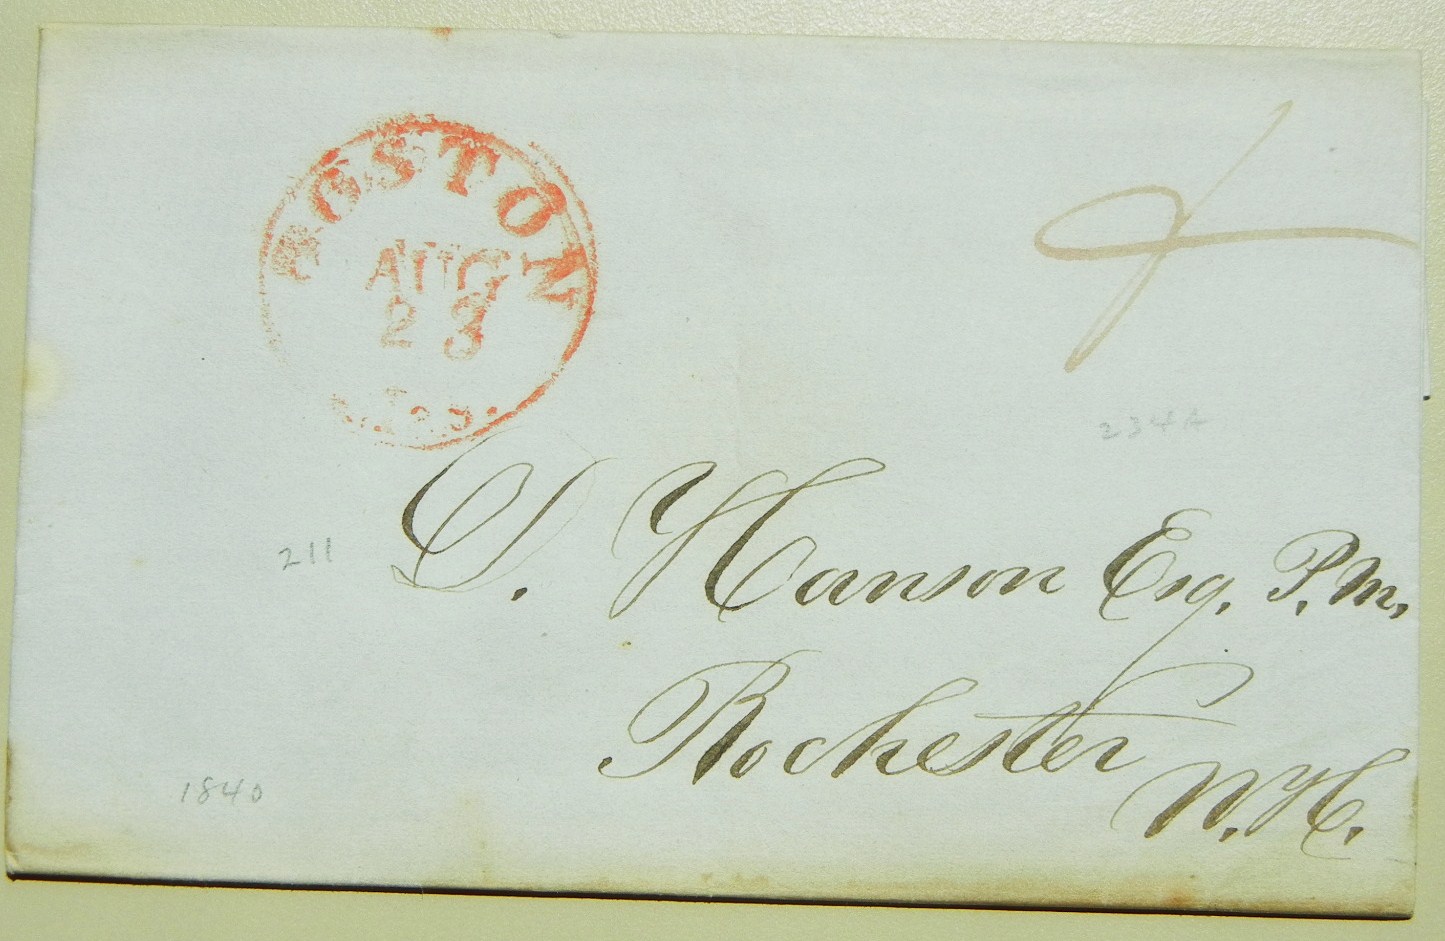 BOSTON
AUG
23
234A
211
D. Hanson Esq. P.M.
Rochester
N.H.
1840